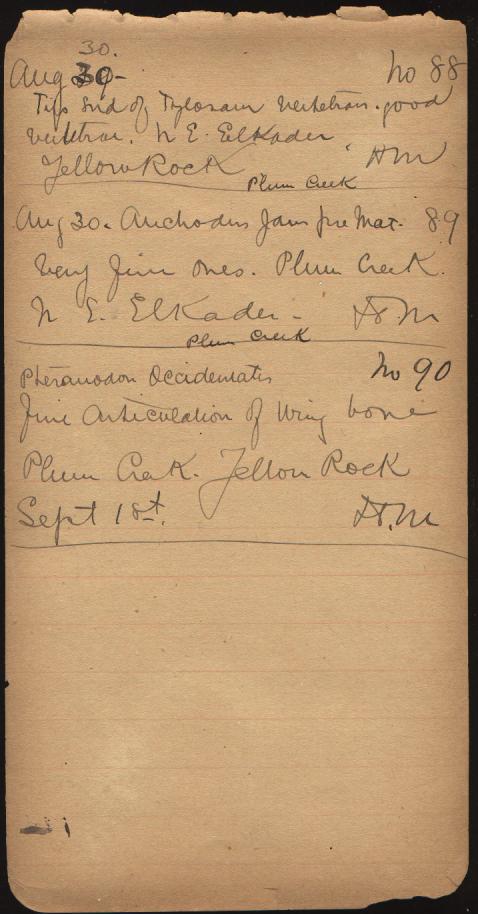 30.
Aug 30- No 88
Tips end of Tylosaur vertebrae. good
vertebrae. N E. Elkader
Yellow Rock H M
Plum Creek
Aug 30. Anchodus Jaws pre Max. 89
Very fine ones. Plum Creek.
N E. Elkader - H. M
Plum Creek
Pteranodon Occidentalis No 90
Fine Articulation of Wing bone
Plum Creek. Yellow Rock
Sept 1st. H. M